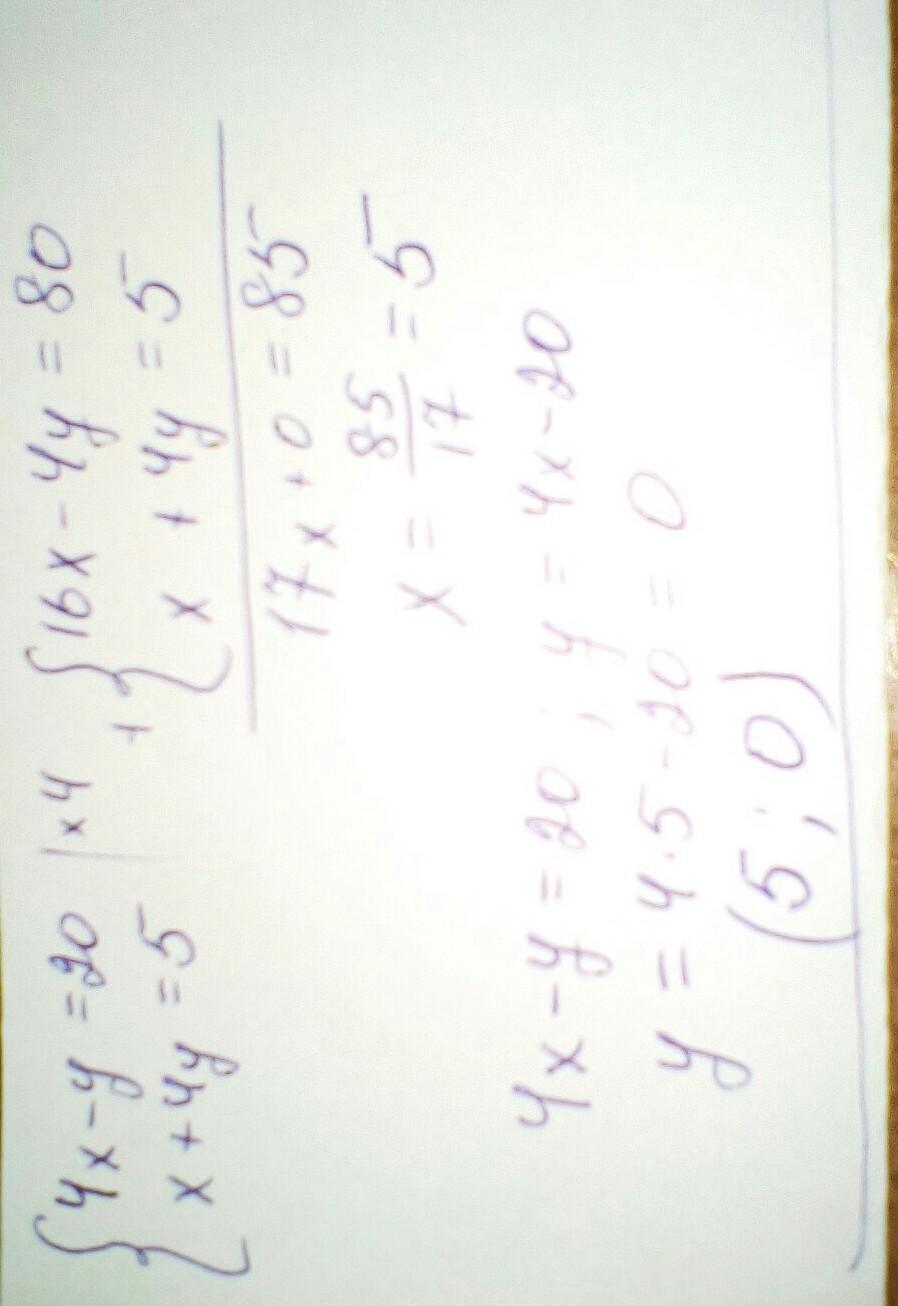 {4x-y=20 |x4 +{16x-4y=80
{x+4y=5 {x+4y=5
17x+0=85
x=85/17=5
4x-y=20; y=4x-20
y=4·5-20=0
(5;0)